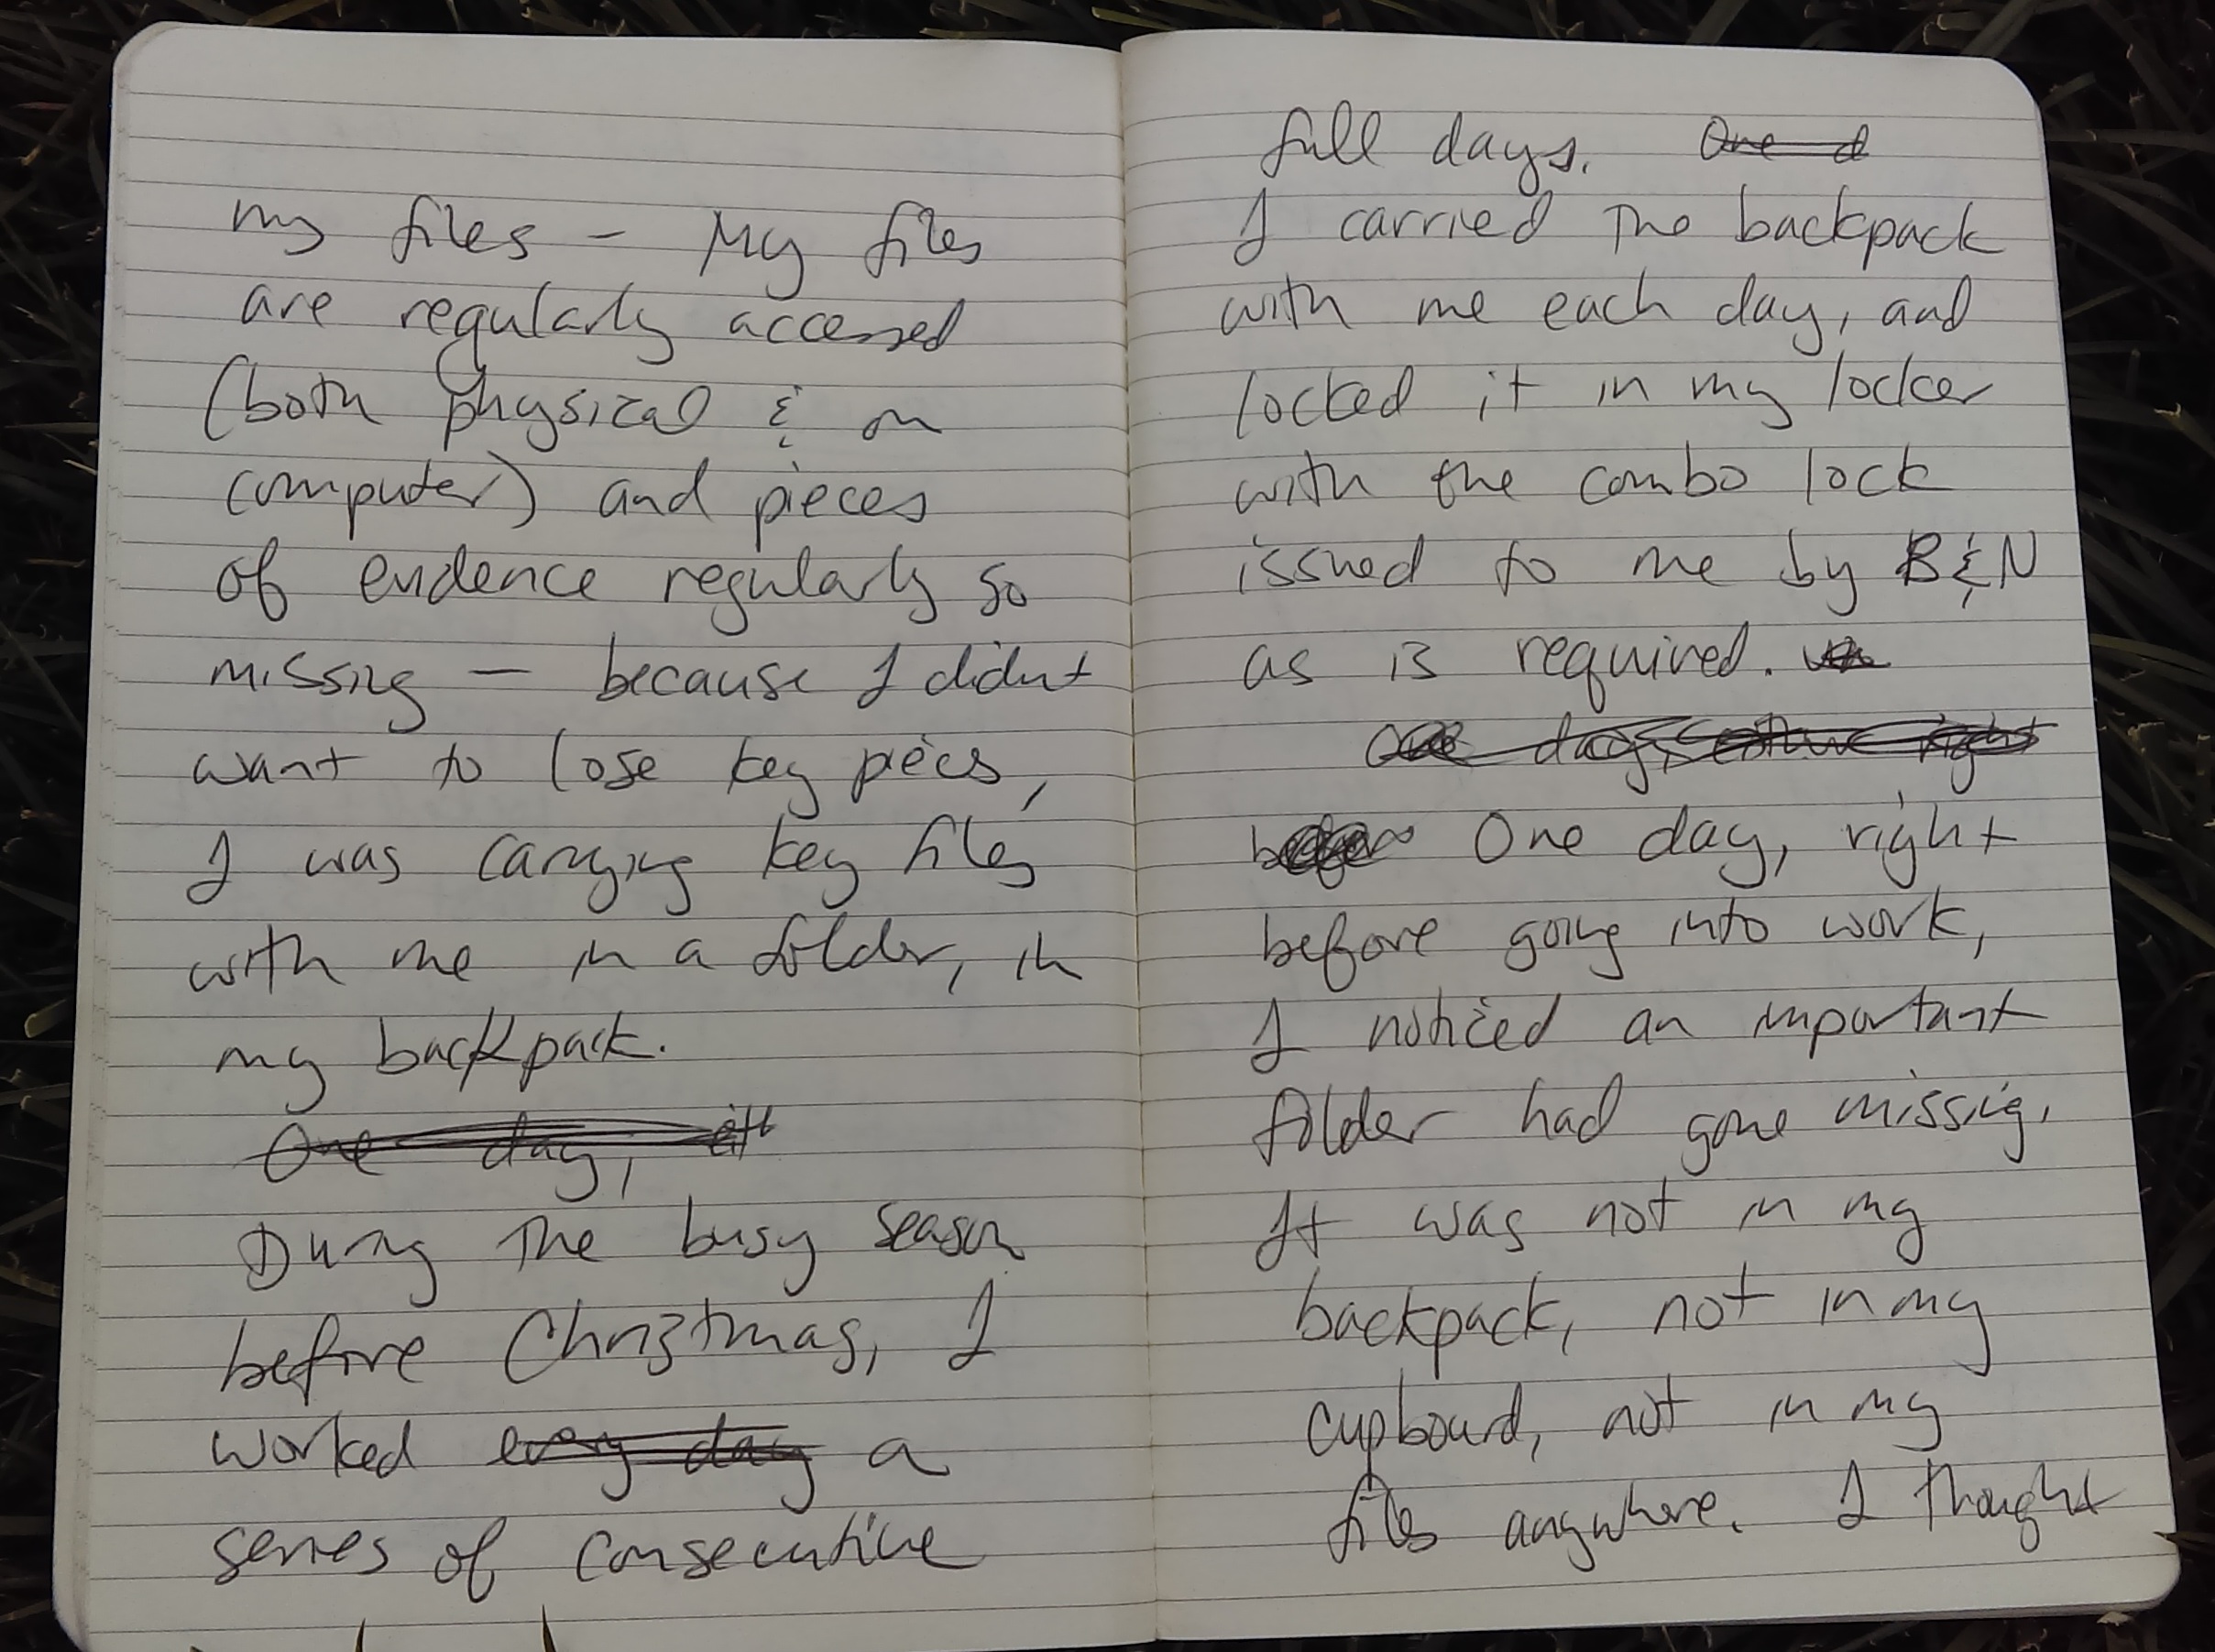 my files – My files
are regularly accessed
(both physical & on
computer) and pieces
of evidence regularly so
missing – because I didnt
want to lose key pieces,
I was carrying key files
with me in a folder, in
my backpack.
One day,
During the busy season
before Christmas, I
worked every day a
series of consecutive
full days. One d
I carried the backpack
with me each day, and
locked it in my locker
with the combo lock
issued to me by B&N
as is required.
One day, right
before One day, right
before going into work,
I noticed an important
folder had gone missing.
It was not in my
backpack, not in my
cupboard, not in my
files anywhere. I thought